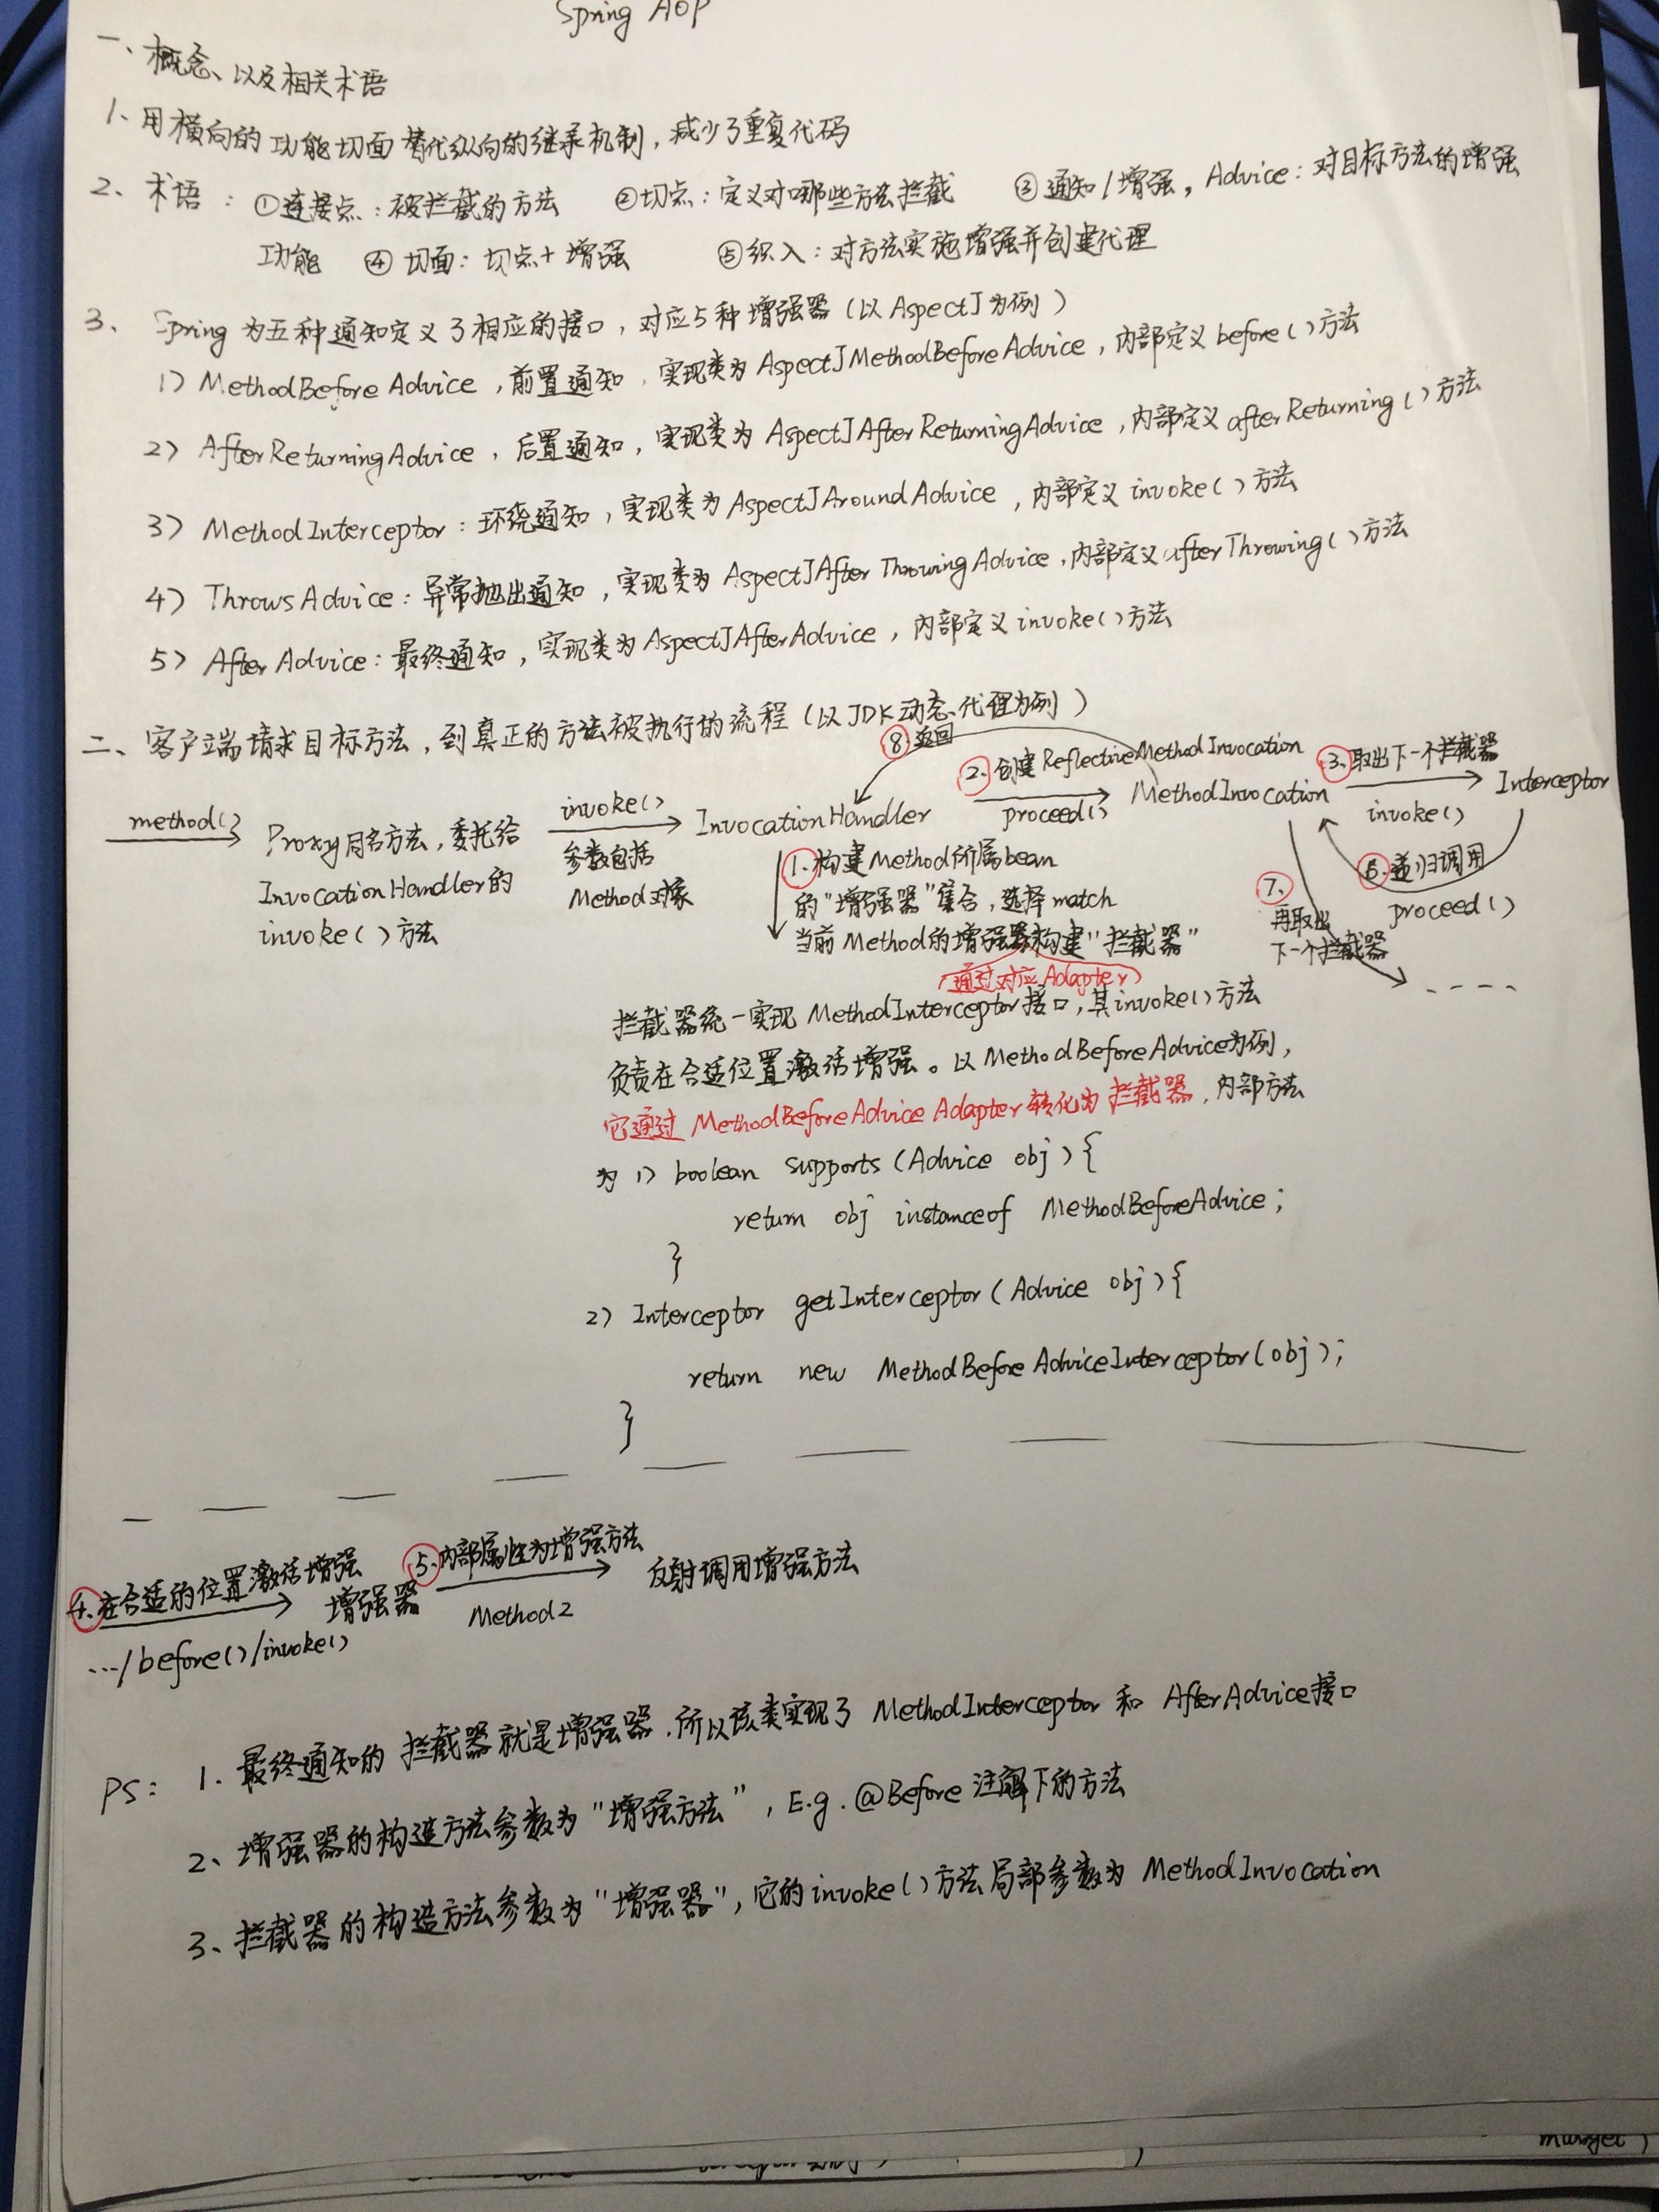 Spring AOP
一、概念、以及相关术语
1、用横向的功能切面替代纵向的继承机制，减少了重复代码
2、术语：①连接点：被拦截的方法 ②切点：定义对哪些方法拦截 ③通知/增强，Advice：对目标方法的增强
功能 ④切面：切点+增强 ⑤织入：对方法实施增强并创建代理
3、Spring为五种通知定义了相应的接口，对应5种增强器（以AspectJ为例）
1）MethodBeforeAdvice，前置通知，实现类为AspectJMethodBeforeAdvice，内部定义before()方法
2）AfterReturningAdvice，后置通知，实现类为AspectJAfterReturningAdvice，内部定义afterReturning()方法
3）MethodInterceptor：环绕通知，实现类为AspectJAroundAdvice，内部定义invoke()方法
4）ThrowsAdvice：异常抛出通知，实现类为AspectJAfterThrowingAdvice，内部定义afterThrowing()方法
5）AfterAdvice：最终通知，实现类为AspectJAfterAdvice，内部定义invoke()方法
二、客户端请求目标方法，到真正的方法被执行的流程（以JDK动态代理为例）
method()
Proxy同名方法，委托给
InvocationHandler的
invoke()方法
invoke()
参数包括
Method对象
InvocationHandler
⑧返回
2、创建ReflectiveMethodInvocation
proceed()
MethodInvocation
3、取出下一个拦截器
invoke()
Interceptor
6、递归调用
proceed()
7、
再取出
下一个拦截器
1、构建Method所属bean
的"增强器"集合，选择match
当前Method的增强器构建"拦截器"
（通过对应Adapter）
拦截器统一实现MethodInterceptor接口，其invoke()方法
负责在合适位置激活增强。以MethodBeforeAdvice为例，
它通过MethodBeforeAdviceAdapter转化为拦截器，内部方法
为 1）boolean supports(Advice obj){
return obj instanceof MethodBeforeAdvice;
}
2）Interceptor getInterceptor(Advice obj){
return new MethodBeforeAdviceInterceptor(obj);
}
4、在合适的位置激活增强
.../before()/invoke()
增强器
5、内部属性为增强方法
Method2
反射调用增强方法
PS：1、最终通知的拦截器就是增强器，所以该类实现了MethodInterceptor和AfterAdvice接口
2、增强器的构造方法参数为"增强方法"，E.g.@Before注解下的方法
3、拦截器的构造方法参数为"增强器"，它的invoke()方法局部参数为MethodInvocation